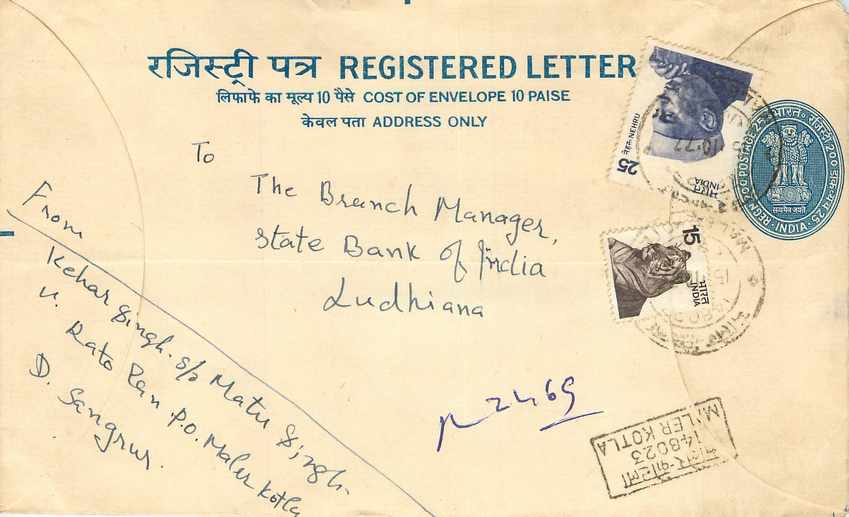 रजिस्ट्री पत्र REGISTERED LETTER
लिफाफे का मूल्य 10 पैसे COST OF ENVELOPE 10 PAISE
केवल पता ADDRESS ONLY
To
The Branch Manager,
State Bank of India
Ludhiana
From
Kehar Singh. S/o Matu Singh
V. Rato Pan P.O. Maler Kotla
D. Sangrur.
2469
25
नेहरू NEHRU
भारत INDIA
15
भारत INDIA
भारत
REGN 200 POSTAGE 25
INDIA
सत्यमेव जयते
148023
MALER KOTLA